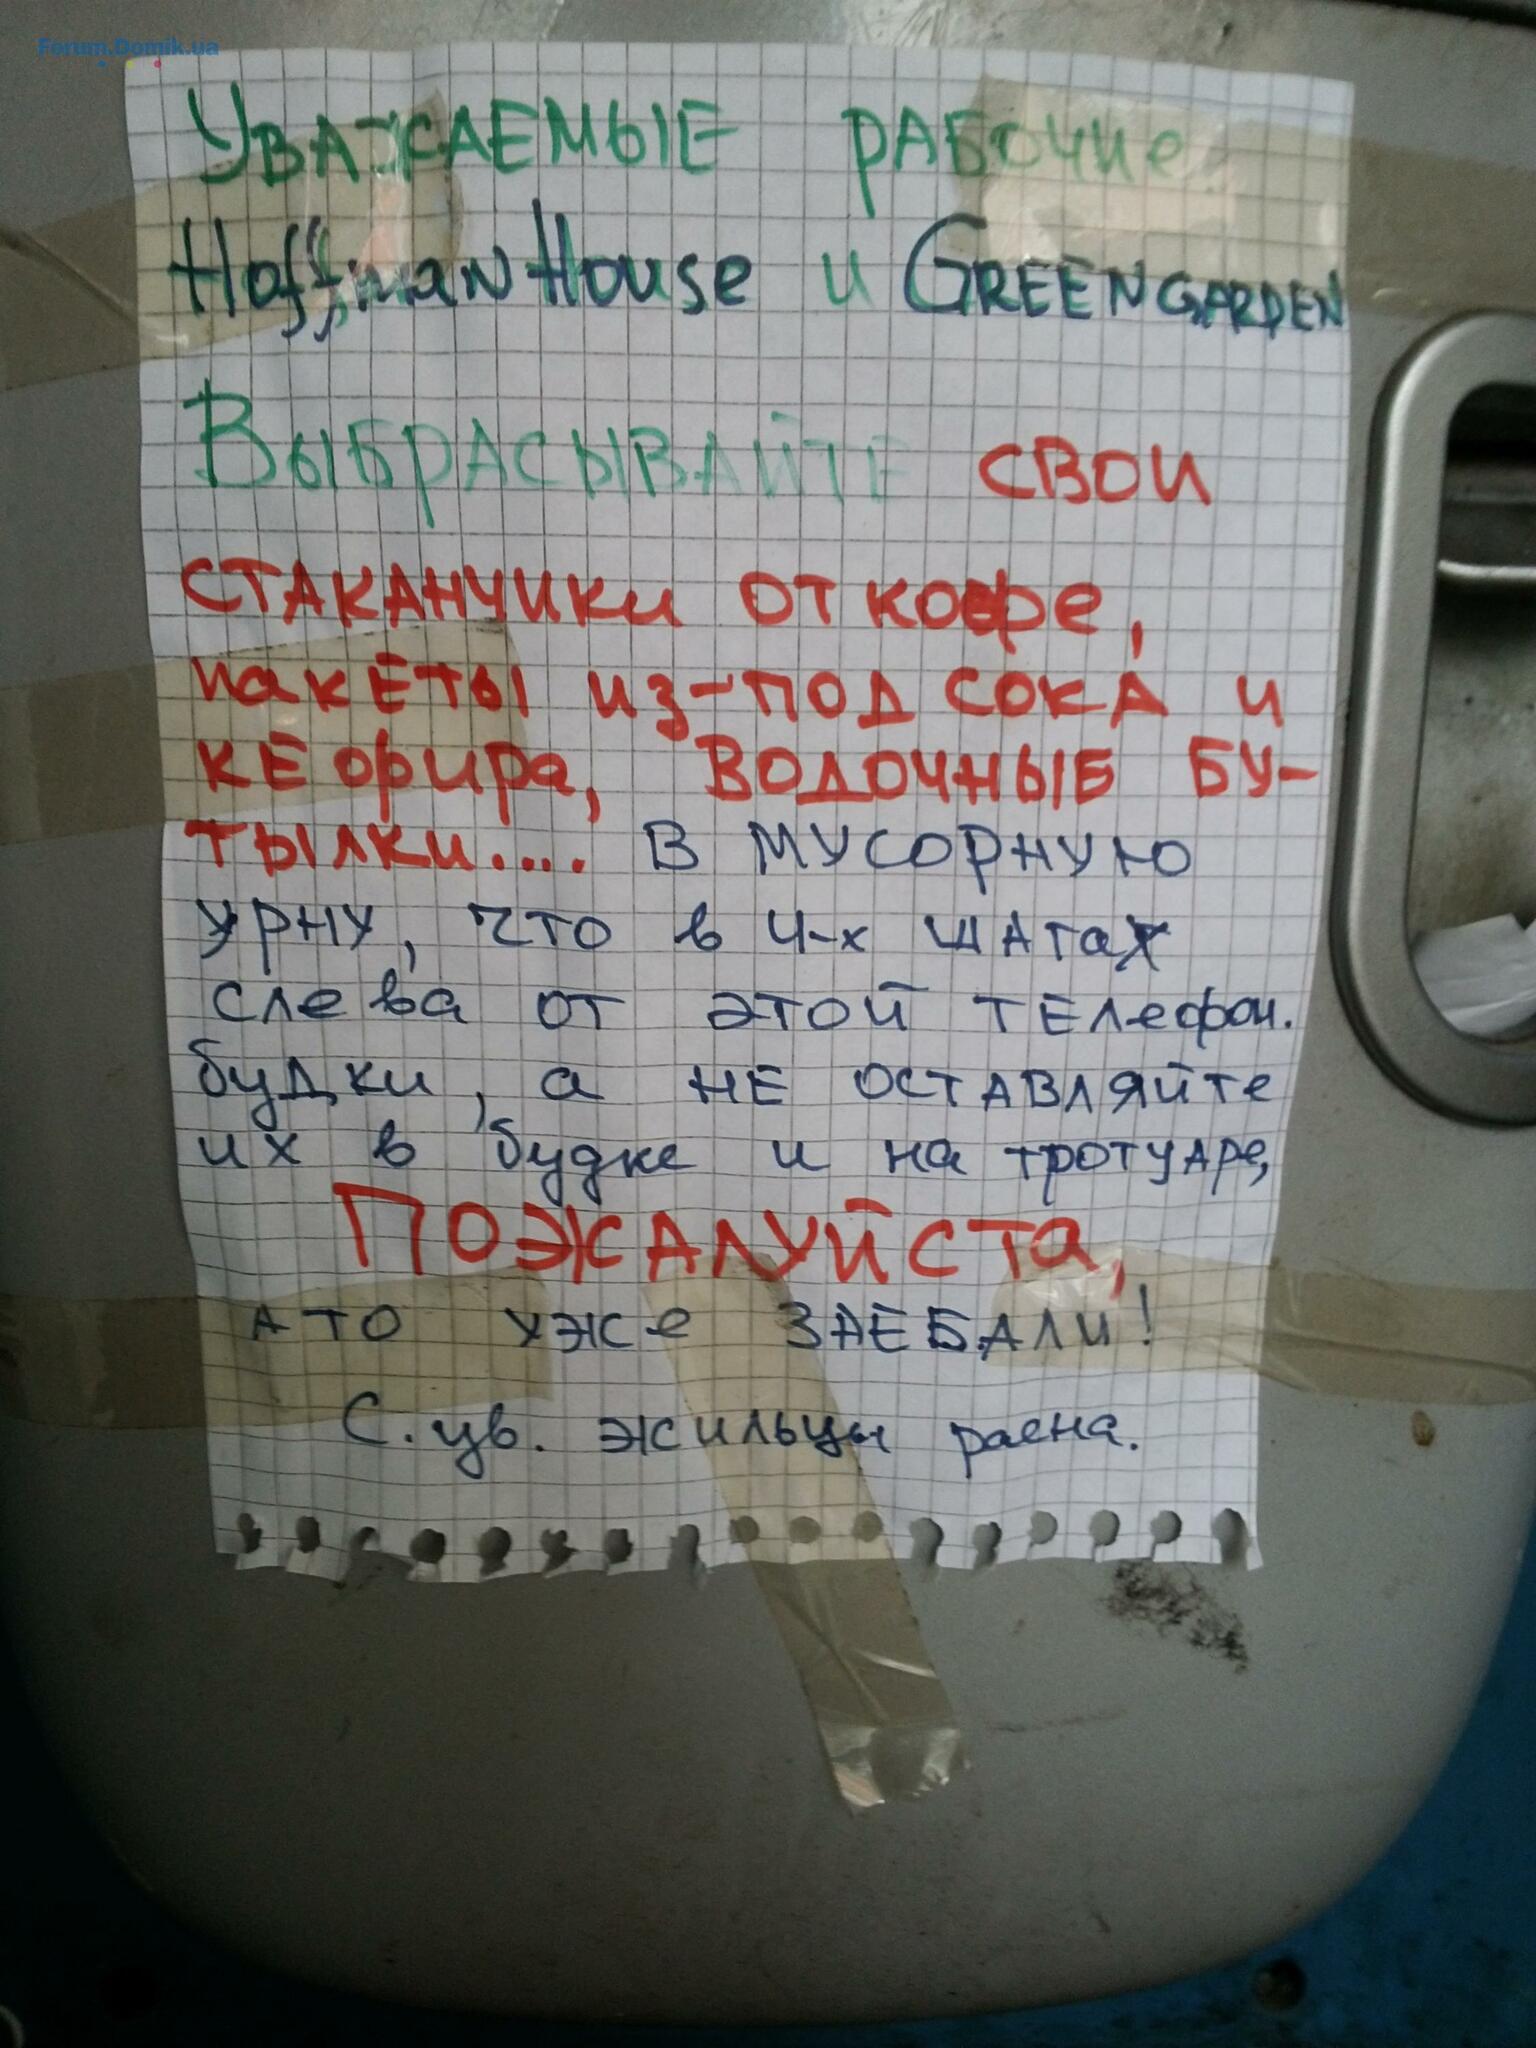 Forum.Domik.ua
Уважаемые рабочие
Hoffman House и GREENGARDEN
Выбрасывайте свои
стаканчики от кофе,
пакеты из-под сока и
кефира, водочные бу-
тылки.... в мусорную
урну, что в 4-х шагах
слева от этой телефон.
будки, а не оставляйте
их в будке и на тротуаре,
Пожалуйста,
а то уже заебали!
С. ув. жильцы раена.